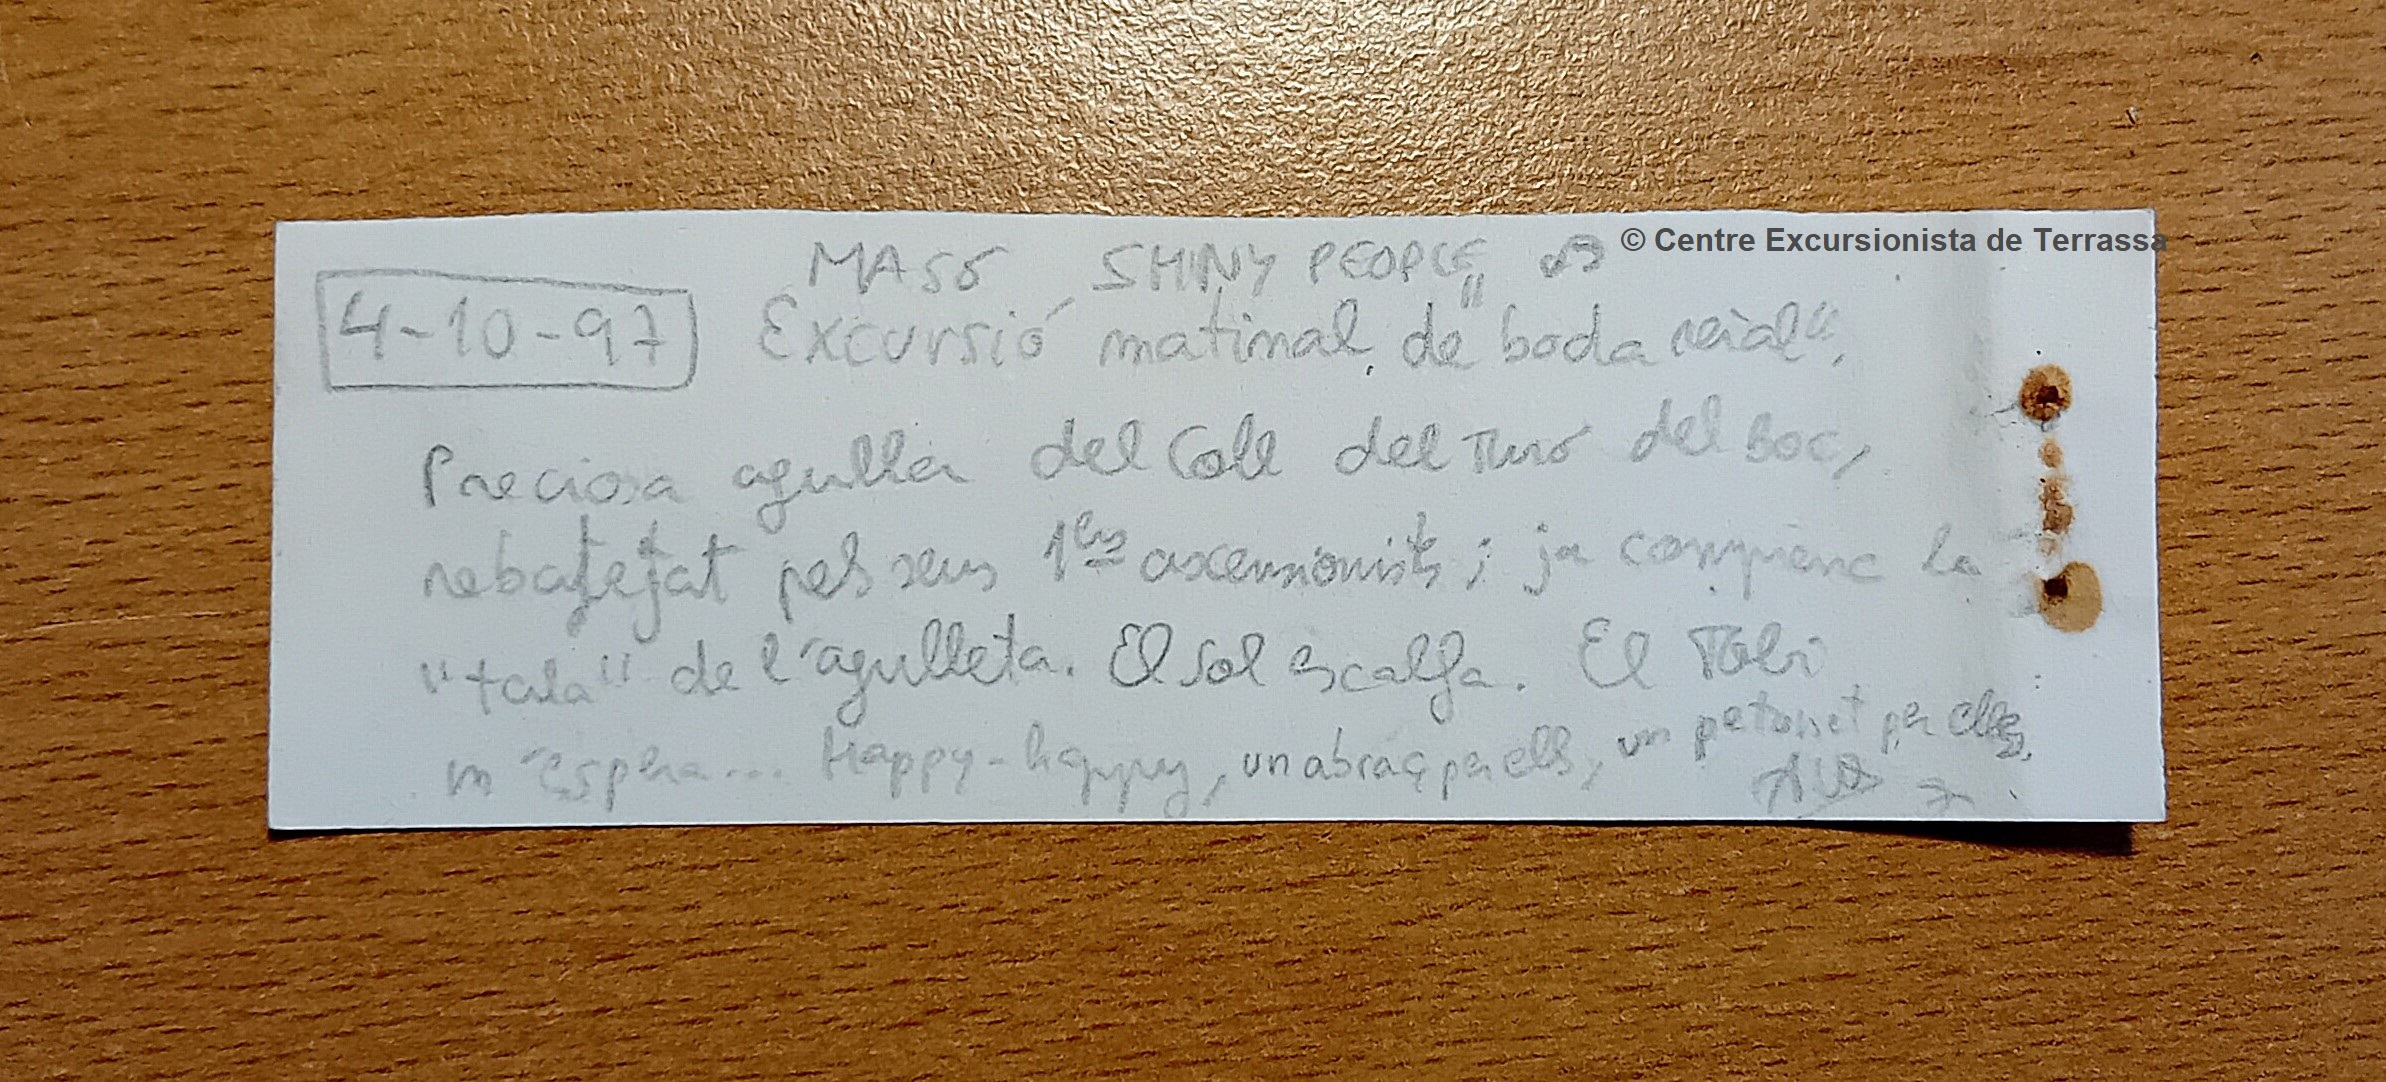 MASÓ SHINY PEOPLE
© Centre Excursionista de Terrassa
4-10-97
Excursió matinal, de "boda reial",
Preciosa agulla del Coll del Turó del Boc,
rebatejat pels seus 1ers ascensionists; ja comiènc la
"tala" de l'agulleta. El sol escalfa. El Tobi
m'espera... Happy-happy, un abraç per ells, un petonet per elles.